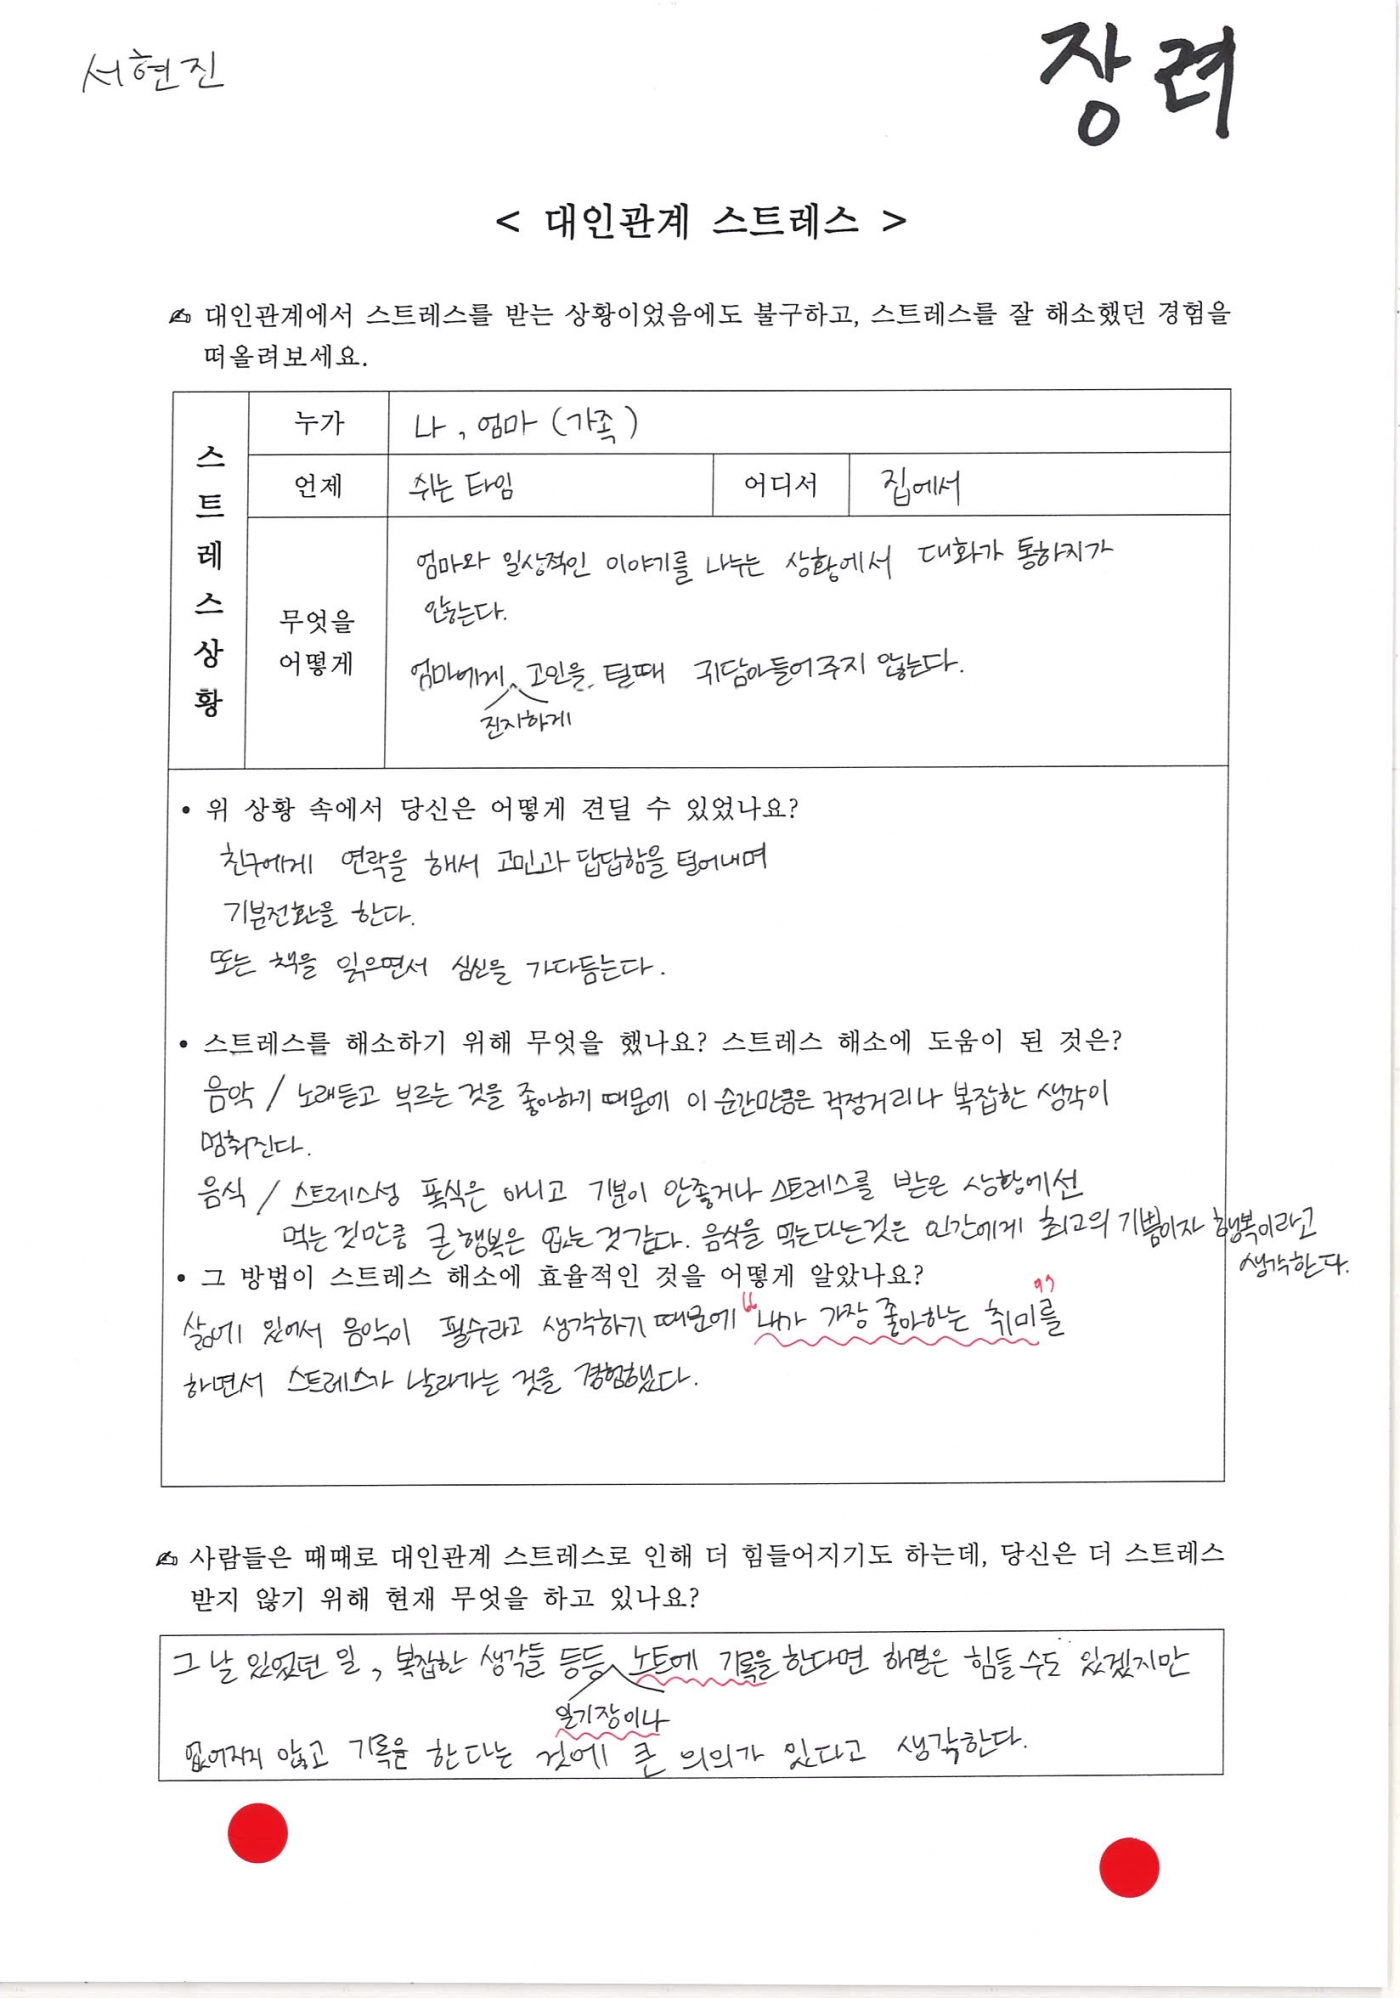 서현진
장려
< 대인관계 스트레스 >
✍ 대인관계에서 스트레스를 받는 상황이었음에도 불구하고, 스트레스를 잘 해소했던 경험을
떠올려보세요.
스트레스상황
누가
나, 엄마 (가족)
언제
쉬는 타임
어디서
집에서
무엇을
어떻게
엄마와 일상적인 이야기를 나누는 상황에서 대화가 통하지가
않는다.
엄마에게 고민을 털때 귀담아들어주지 않는다.
진지하게
• 위 상황 속에서 당신은 어떻게 견딜 수 있었나요?
친구에게 연락을 해서 고민과 답답함을 털어내며
기분전환을 한다.
또는 책을 읽으면서 심신을 가다듬는다.
• 스트레스를 해소하기 위해 무엇을 했나요? 스트레스 해소에 도움이 된 것은?
음악 / 노래듣고 부르는 것을 좋아하기 때문에 이 순간만큼은 걱정거리나 복잡한 생각이
멈춰진다.
음식 / 스트레스성 폭식은 아니고 기분이 안좋거나 스트레스를 받은 상황에선
먹는 것만큼 큰 행복은 없는 것 같다. 음식을 먹는다는것은 인간에게 최고의 기쁨이자 행복이라고
생각한다.
• 그 방법이 스트레스 해소에 효율적인 것을 어떻게 알았나요?
삶에 있어서 음악이 필수라고 생각하기 때문에 "내가 가장 좋아하는 취미"를
하면서 스트레스가 날라가는 것을 경험했다.
✍ 사람들은 때때로 대인관계 스트레스로 인해 더 힘들어지기도 하는데, 당신은 더 스트레스
받지 않기 위해 현재 무엇을 하고 있나요?
그 날 있었던 일, 복잡한 생각들 등등 노트에 기록을 한다면 해결은 힘들 수도 있겠지만
일기장이나
없어지지 않고 기록을 한다는 것에 큰 의의가 있다고 생각한다.